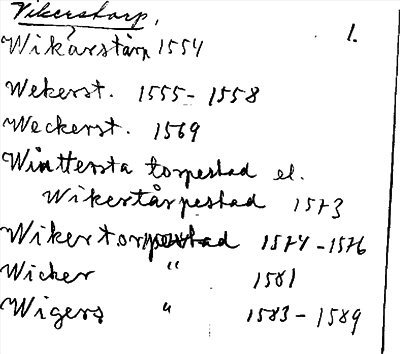 Vikerstorp, 1.
Wikarstårp 1554
Wekerst. 1555-1558
Weckerst. 1569
Winttersta torpestad el.
Wikertårpestad 1573
Wikertorpestad 1574-1576
Wicker " 1581
Wigers " 1583-1589